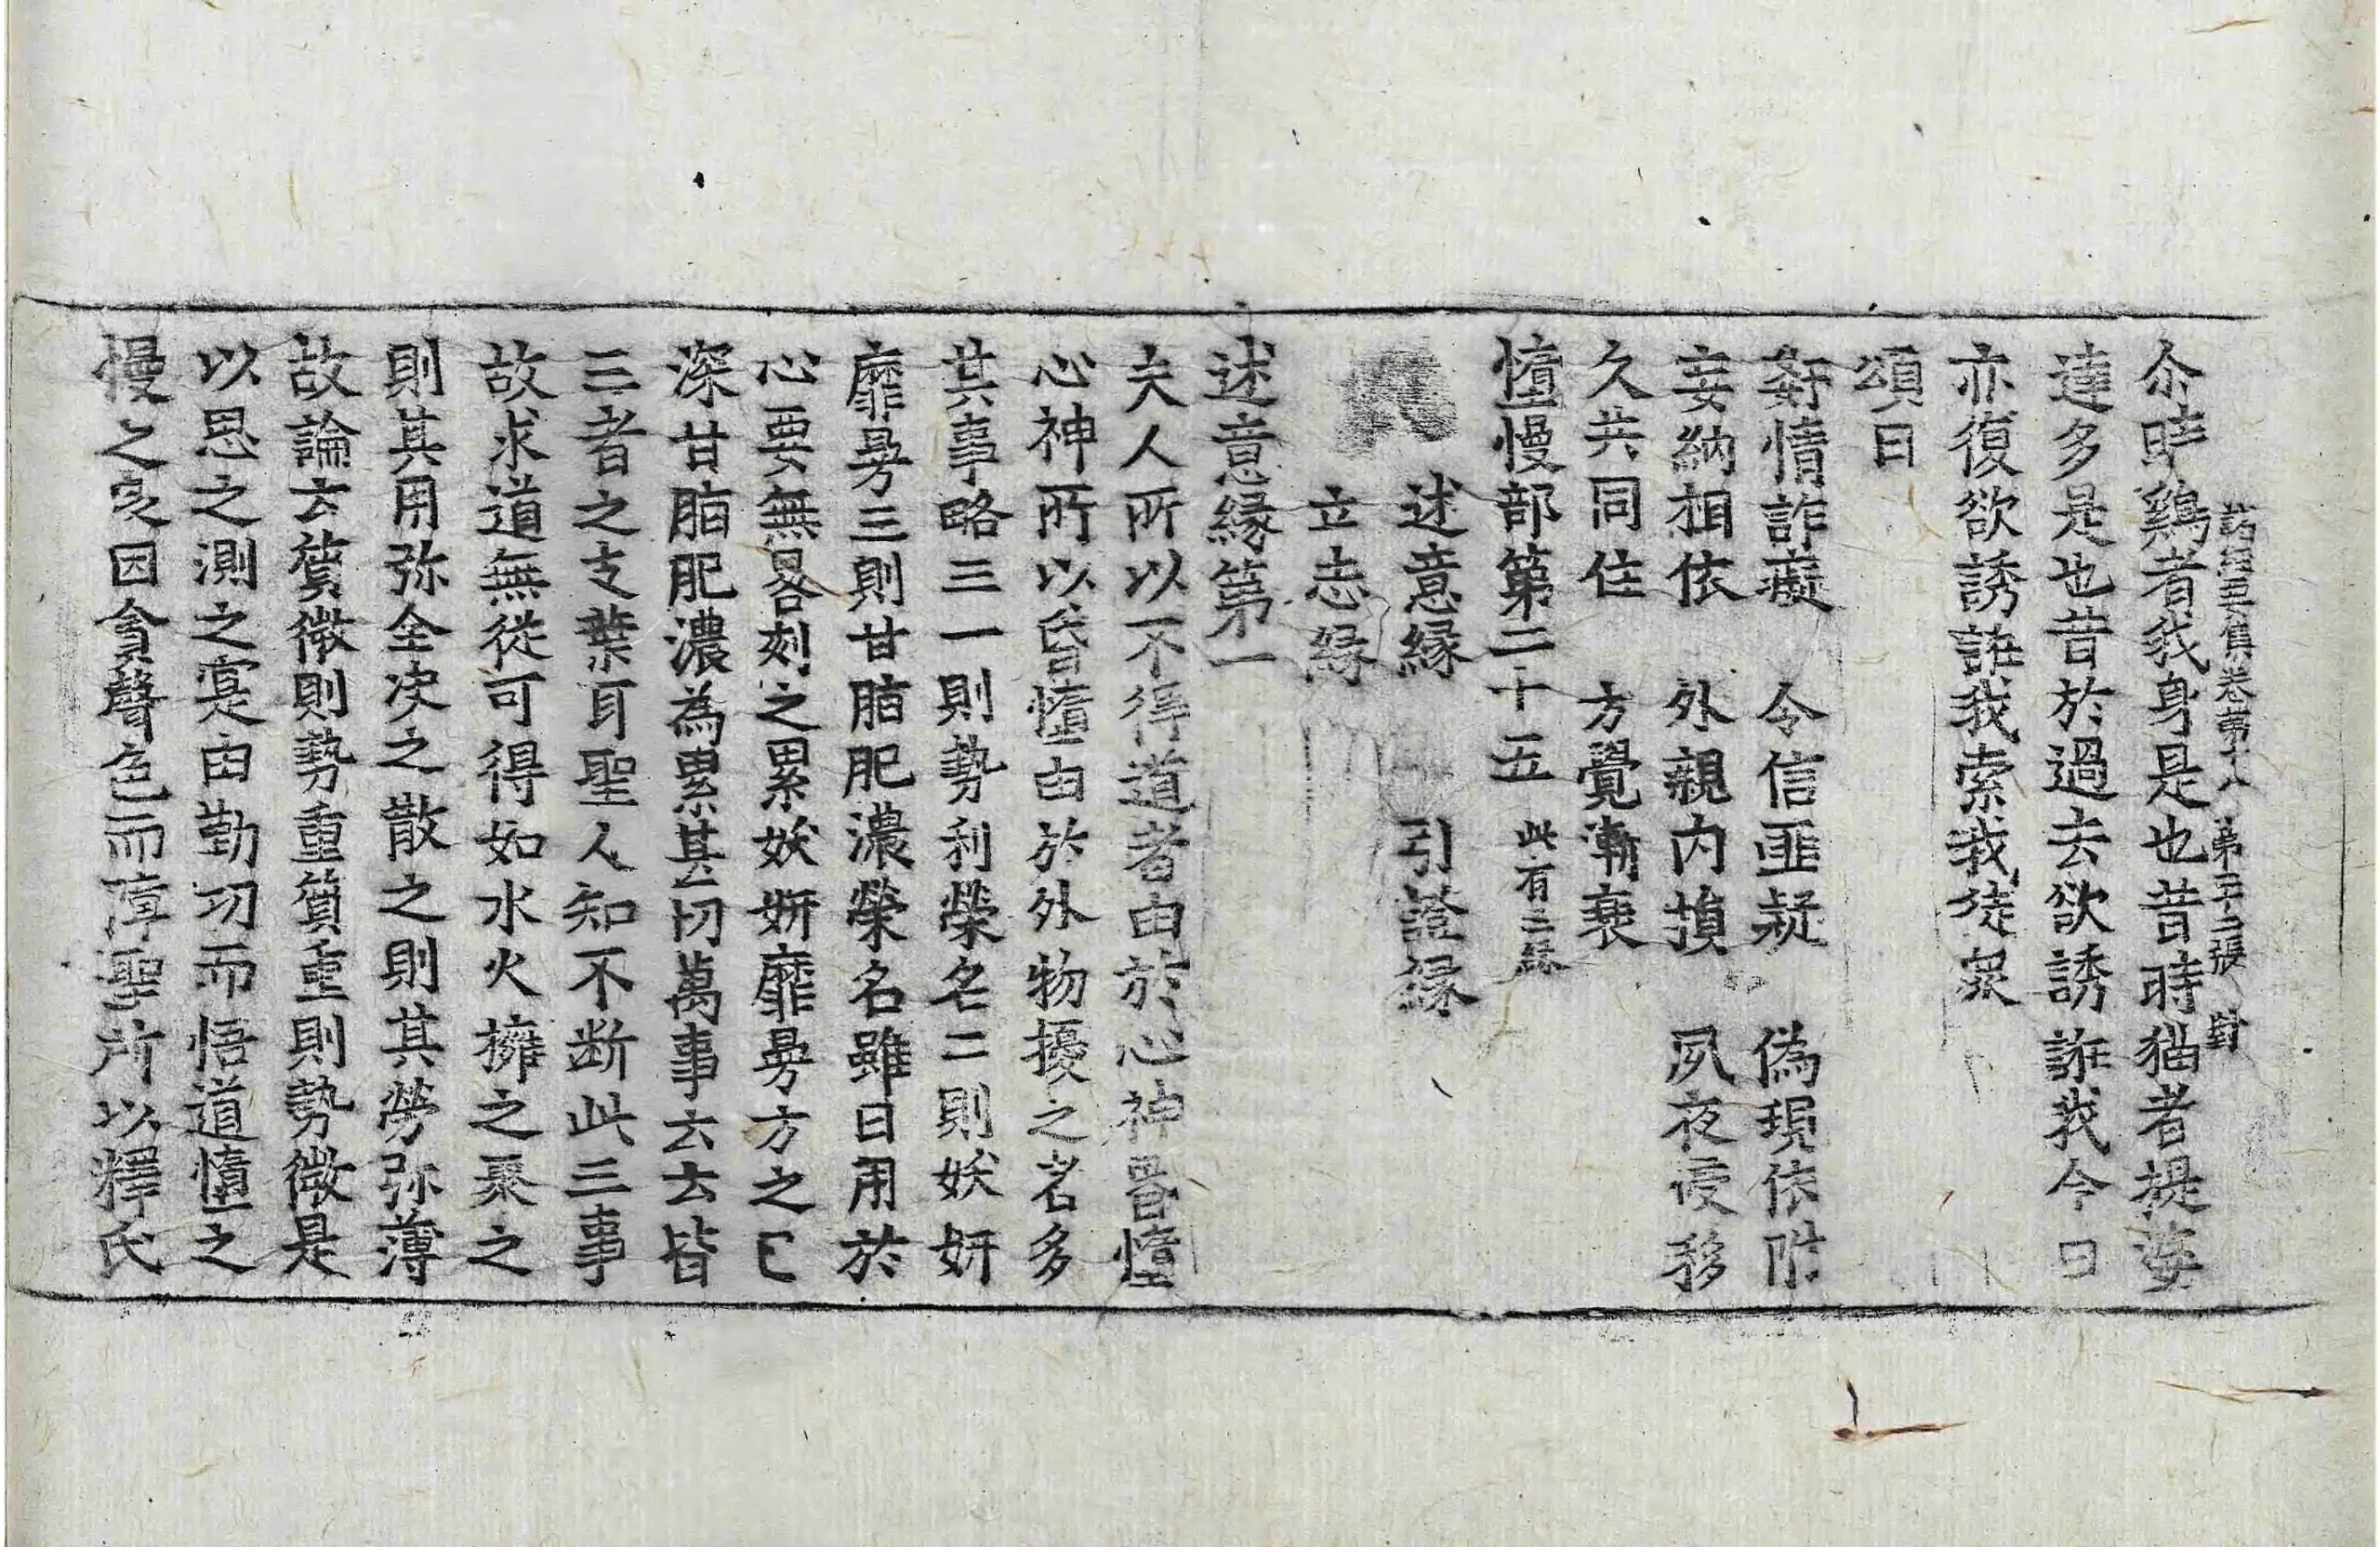 諸經要集卷第十八　第二十二張　對
尒時鷄者我身是也昔時猫者提婆
達多是也昔於過去欲誘誑我今日
亦復欲誘誑我索我徒衆
頌曰
姧情詐癡　令信匪疑　偽現依附
妄納相依　外親內損　夙夜侵移
久共同住　方覺漸衰
憻慢部第二十五　此有三緣
述意緣　引證緣
立志緣
述意緣第一
夫人所以不得道者由於心神昏憻
心神所以昏憻由於外物擾之名多
其事略三一則勢利榮名二則妖姸
靡曼三則甘脂肥濃榮名雖日用於
心要無晷刻之累妖姸靡曼方之已
深甘脂肥濃為累甚切萬事云云皆
三者之支葉耳聖人知不断此三事
故求道無從可得如水火擁之聚之
則其用弥全決之散之則其勞弥薄
故論云質微則勢重質重則勢微是
以思之測之寔由勤功而悟道憻之
慢之良因貪聲色而障聖所以釋氏